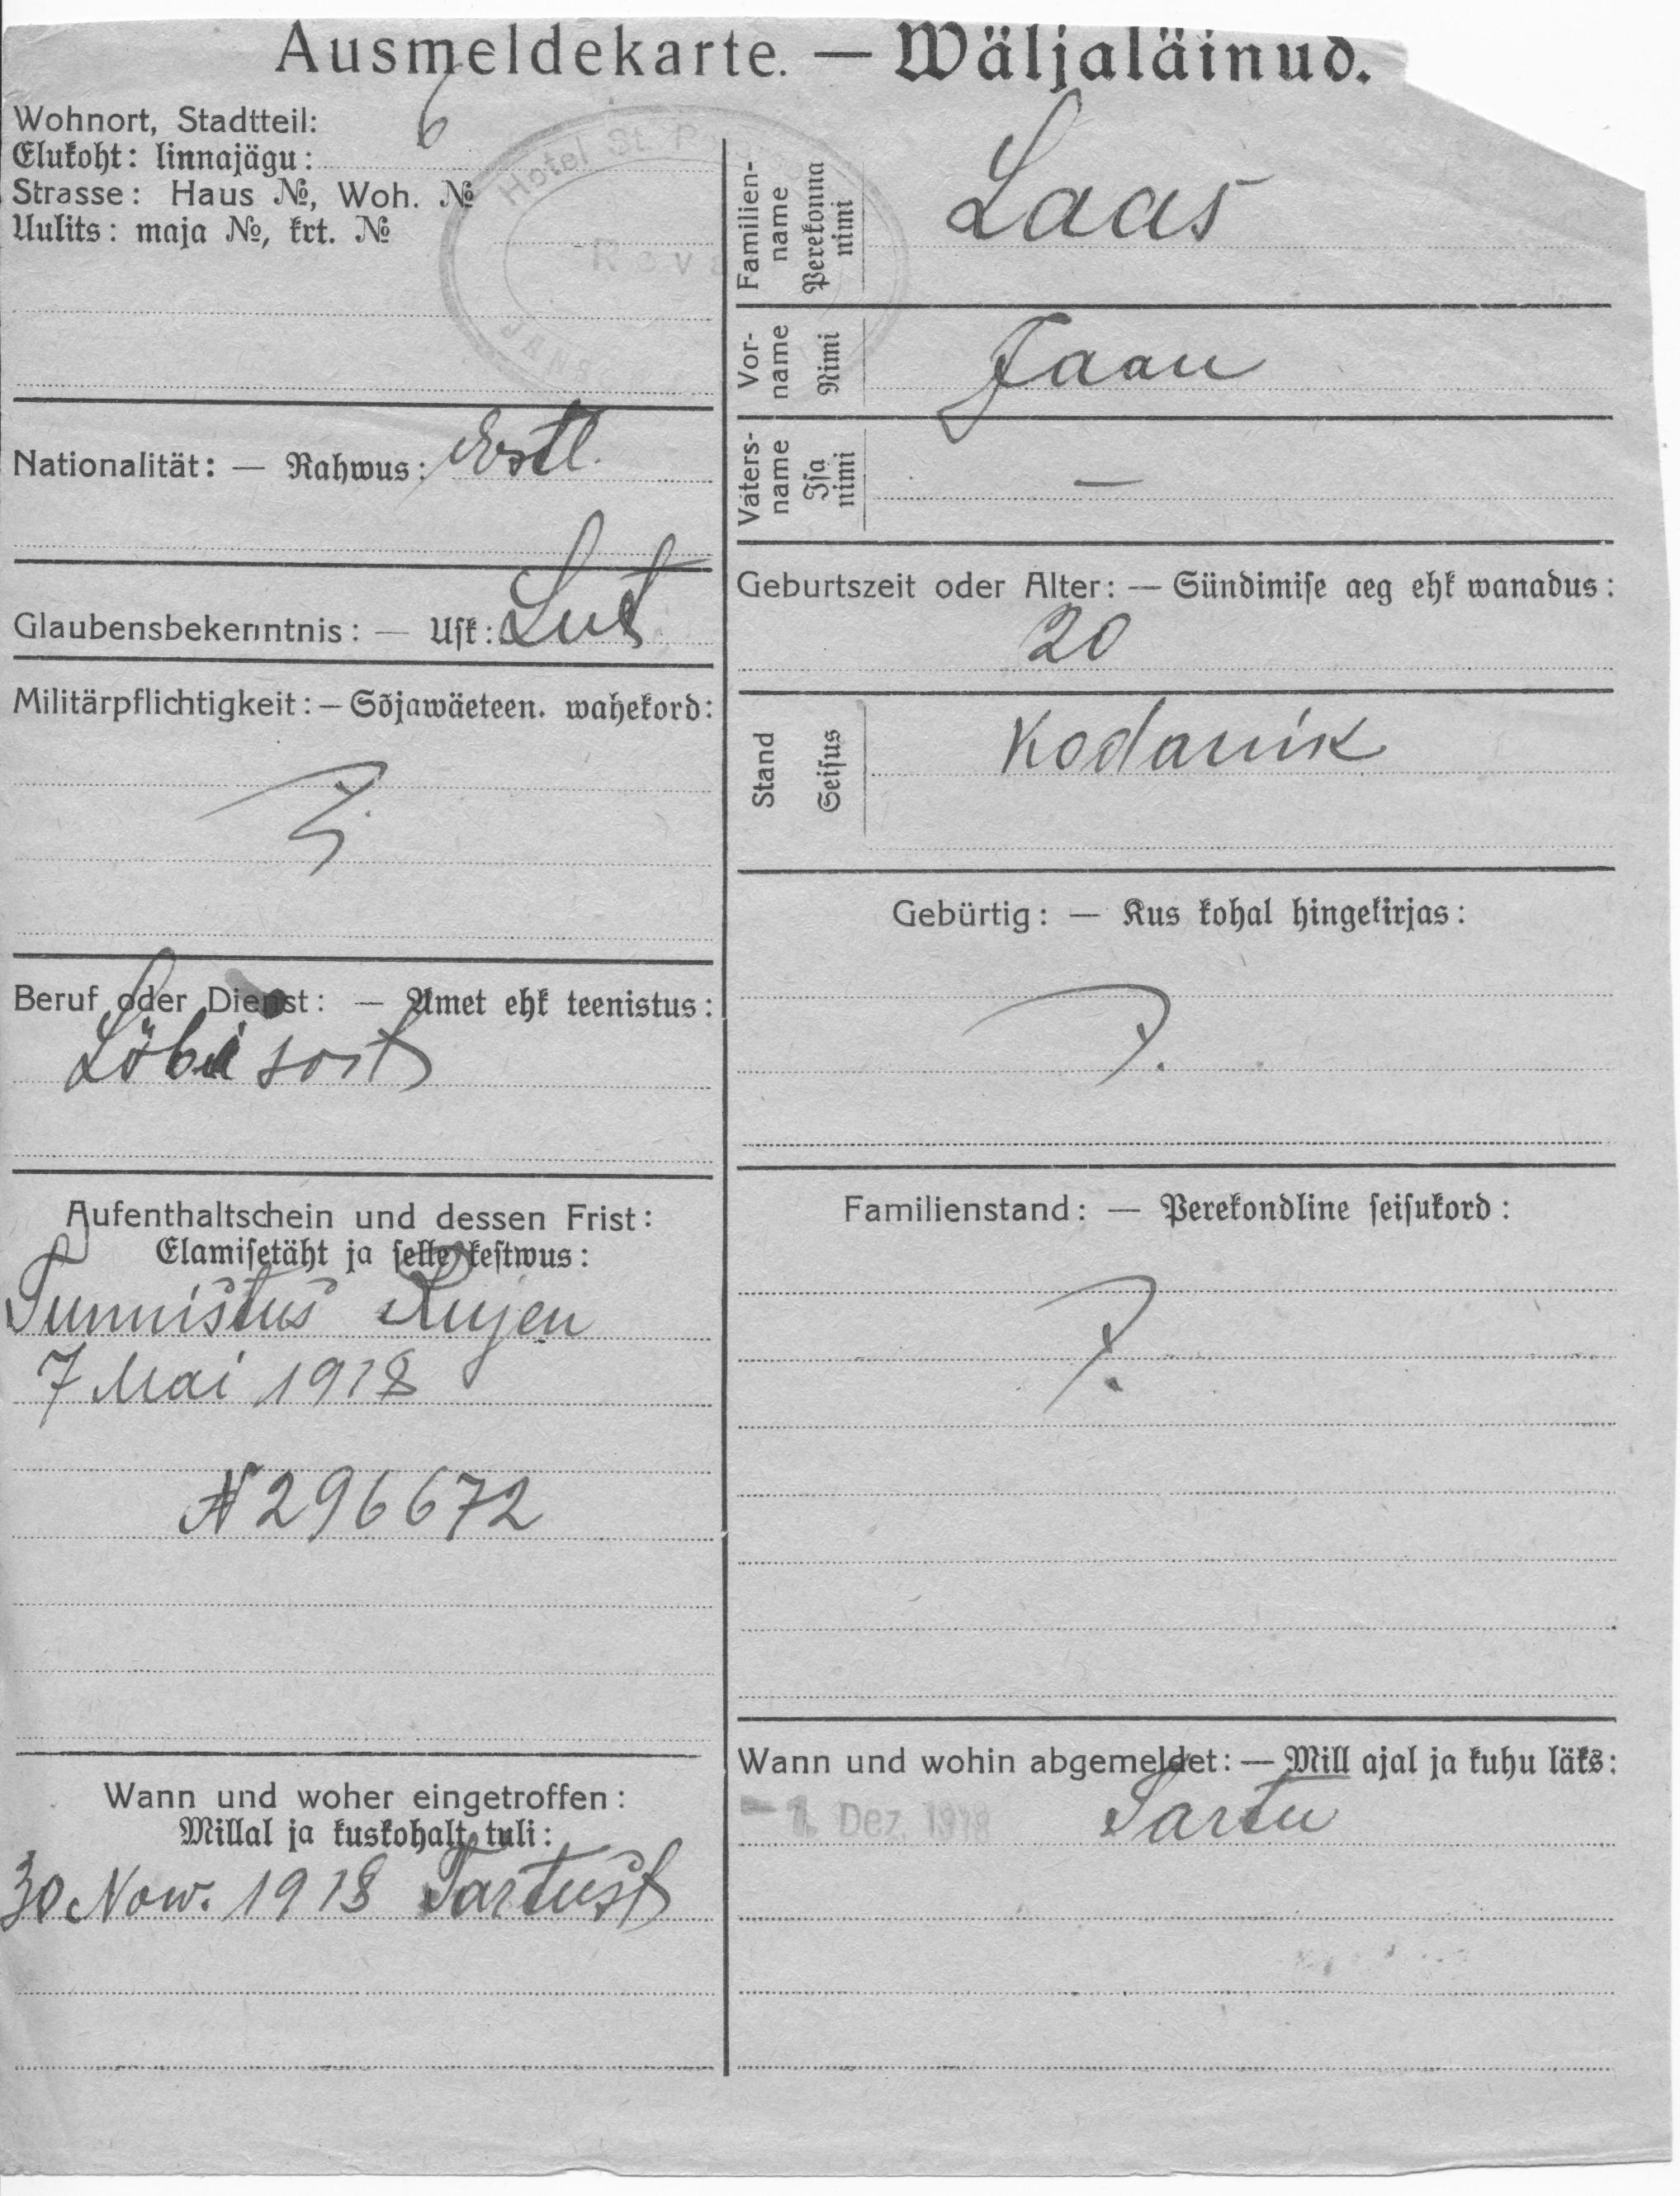 Ausmeldekarte. — Wäljaläinud.
6
Wohnort, Stadtteil:
Elukoht: linnajägu:
Strasse: Haus №, Woh. №
Uulits: maja №, krt. №
Hotel St. P
Reva
JANS
Nationalität: — Rahwus: Estl.
Glaubensbekenntnis: — Usk: Lut
Militärpflichtigkeit: — Sõjawäeteen. wahekord:
Beruf oder Dienst: — Amet ehk teenistus:
Aufenthaltschein und dessen Frist:
Elamisetäht ja selle kestwus:
Tunnistus Rujen
7 Mai 1918
N 296672
Wann und woher eingetroffen:
Millal ja kuskohalt tuli:
30 Now. 1918 Tartust
Familien-
name
Perekonna
nimi
Laas
Vor-
name
Nimi
Jaan
Vaters-
name
Isa
nimi
—
Geburtszeit oder Alter: — Sündimise aeg ehk wanadus:
20
Stand
Seisus
Kodanik
Gebürtig: — Kus kohal hingekirjas:
Familienstand: — Perekondline seisukord:
Wann und wohin abgemeldet: — Mill ajal ja kuhu läks:
-1. Dez. 1918 Tartu